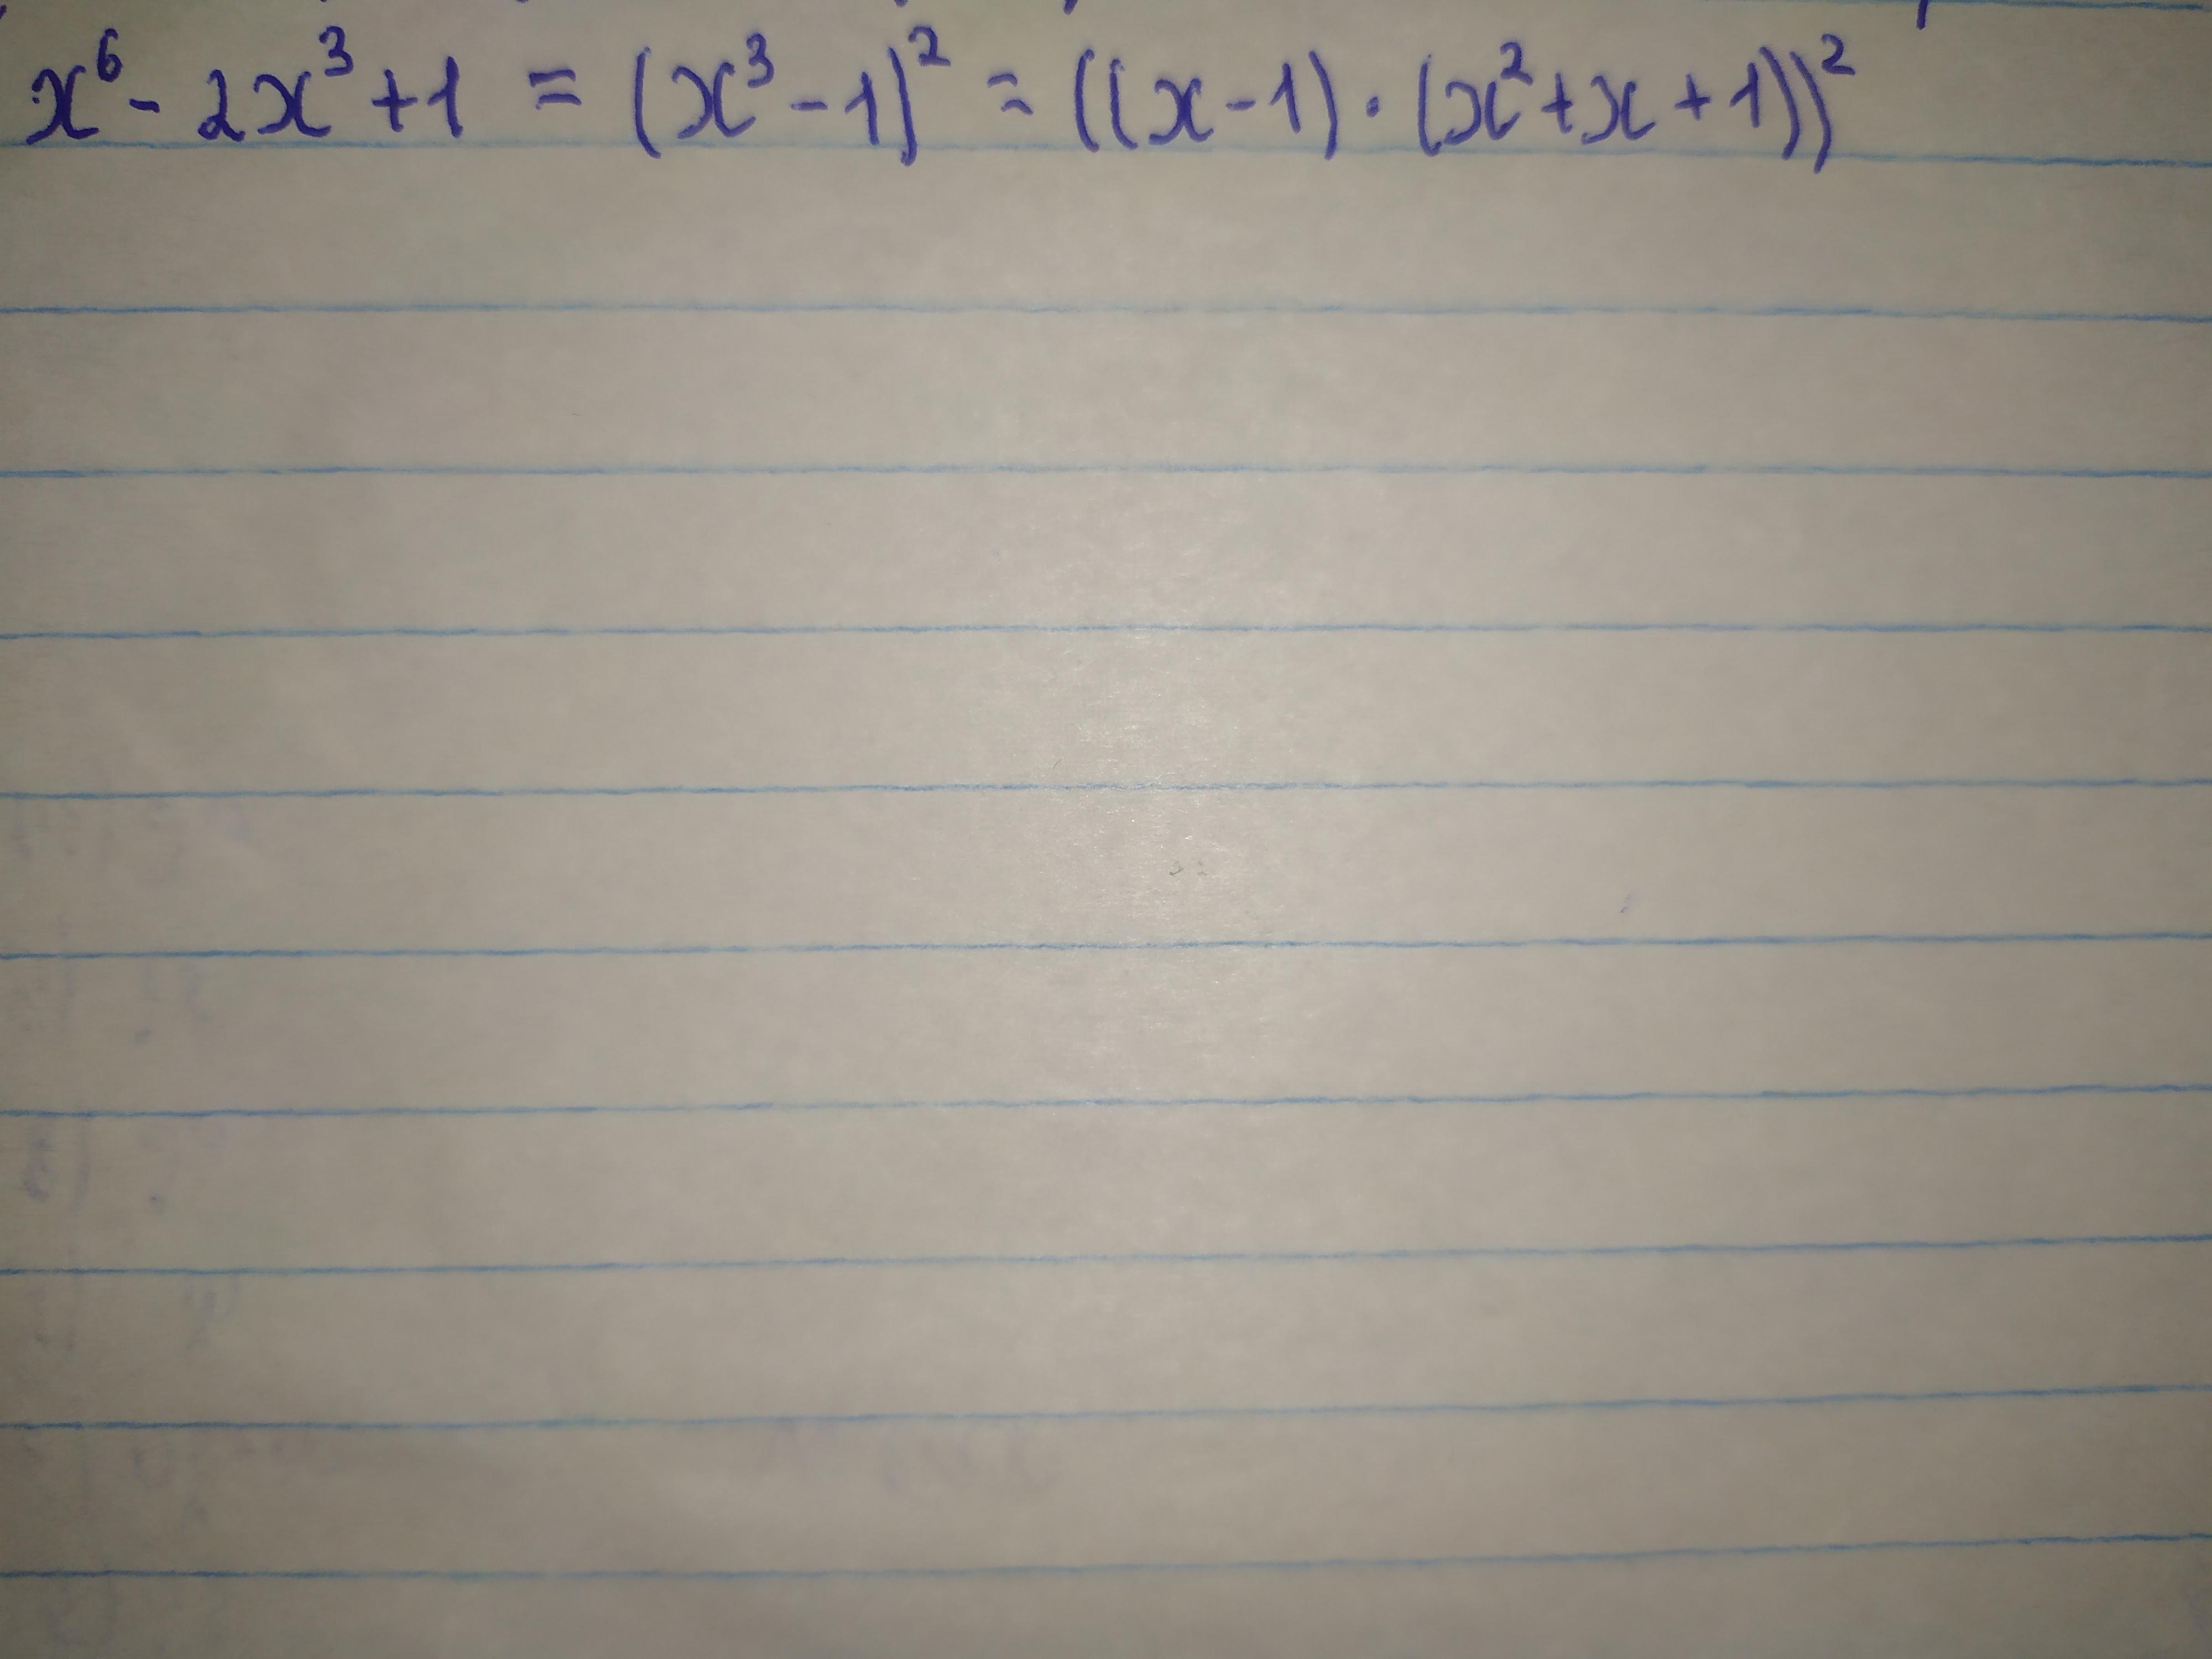 x⁶ - 2x³ + 1 = (x³ - 1)² = ((x - 1) · (x² + x + 1))²